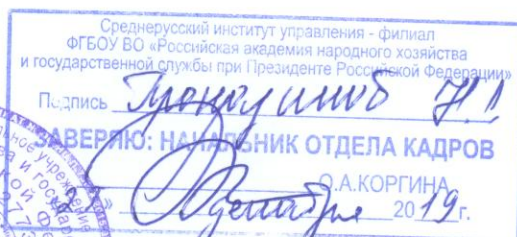 Среднерусский институт управления - филиал
ФГБОУ ВО «Российская академия народного хозяйства
и государственной службы при Президенте Российской Федерации»
Подпись
ЗАВЕРЯЮ: НАЧАЛЬНИК ОТДЕЛА КАДРОВ
О.А.КОРГИНА
» декабря 2019 г.